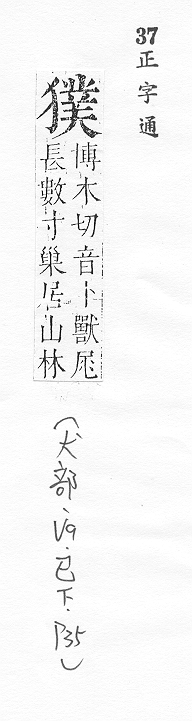 37
正字通
獛
博木切音卜獸凥
長數寸巢居山林
(犬部、V9、巳下、P35)